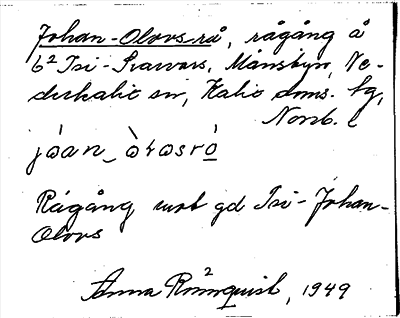 Johan-Olovs-rå, rågång å
6² Isi-Ivarsars, Månsbyn, Ne-
derkalix sn, Kalix doms. hg,
Norrb. l
jòan_òlåsrå
Rågång mot gd Isi-Johan-
Olovs
Anna Rönnquist, 1949